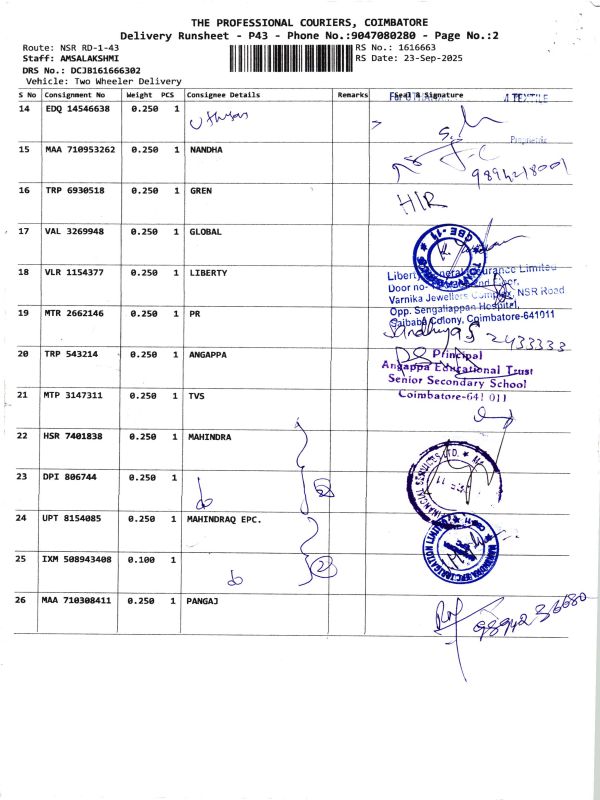 THE PROFESSIONAL COURIERS, COIMBATORE
Delivery Runsheet - P43 - Phone No.:9047080280 - Page No.:2
Route: NSR RD-1-43
RS No.: 1616663
Staff: AMSALAKSHMI
RS Date: 23-Sep-2025
DRS No.: DCJB161666302
Vehicle: Two Wheeler Delivery
S No Consignment No Weight PCS Consignee Details Remarks Seal & Signature
14 EDQ 14546638 0.250 1
15 MAA 710953262 0.250 1 NANDHA
9894218001
16 TRP 6930518 0.250 1 GREN
H/R
17 VAL 3269948 0.250 1 GLOBAL
18 VLR 1154377 0.250 1 LIBERTY
Liberty General Insurance Limited
Door no-
Varnika Jewellers Complex, NSR Road
Opp. Sengaliappan Hospital,
Saibaba Colony, Coimbatore-641011
19 MTR 2662146 0.250 1 PR
Sandhya S 2433333
20 TRP 543214 0.250 1 ANGAPPA
Principal
Angappa Educational Trust
Senior Secondary School
Coimbatore-641 011
21 MTP 3147311 0.250 1 TVS
22 HSR 7401838 0.250 1 MAHINDRA
23 DPI 806744 0.250 1 do 2
24 UPT 8154085 0.250 1 MAHINDRAQ EPC.
25 IXM 508943408 0.100 1 do 2
26 MAA 710308411 0.250 1 PANGAJ
9894236680